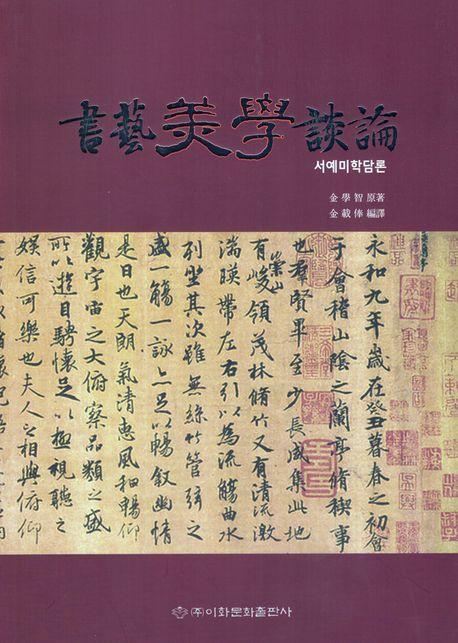 書藝美學談論
서예미학담론
金學智 原著
金載俸 編譯
永和九年歲在癸丑暮春之初會
于會稽山陰之蘭亭脩稧事
也群賢畢至少長咸集此地
有崇山峻領茂林脩竹又有清流激
湍暎帶左右引以為流觴曲水
列坐其次雖無絲竹管弦之
盛一觴一詠亦足以暢敘幽情
是日也天朗氣清惠風和暢仰
觀宇宙之大俯察品類之盛
所以遊目騁懷足以極視聽之
娛信可樂也夫人之相與俯仰
㈜이화문화출판사